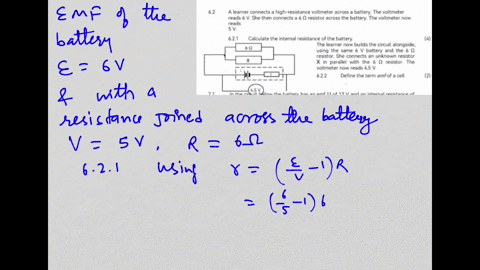 EMF of the
battery
ε = 6V
& with a
resistance joined across the battery
V = 5V, R = 6Ω
6.2.1 using r = (ε/V - 1)R
= (6/5 - 1) 6
6.2 A learner connects a high-resistance voltmeter across a battery. The voltmeter
reads 6 V. She then connects a 6 Ω resistor across the battery. The voltmeter now
reads
5 V.
6.2.1 Calculate the internal resistance of the battery. (4)
6 Ω
X
4,5 V
The learner now builds the circuit alongside,
using the same 6 V battery and the 6 Ω
resistor. She connects an unknown resistor
X in parallel with the 6 Ω resistor. The
voltmeter now reads 4,5 V.
6.2.2 Define the term emf of a cell. (2)